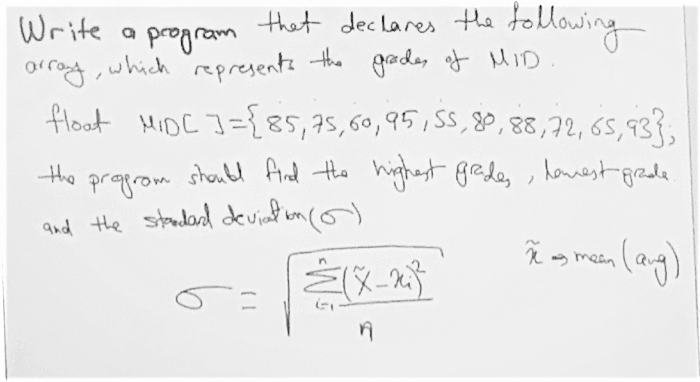 Write a program that declares the following
array, which represents the grades of MID.
float MID[ ]={85,75,60,95,55,80,88,72,65,93};
the program should find the highest grades, lowest grade
and the standard deviation(σ)
x̃ → mean (avg)
σ = √(Σⁿᵢ₌₁(x̃-xi)² / n)